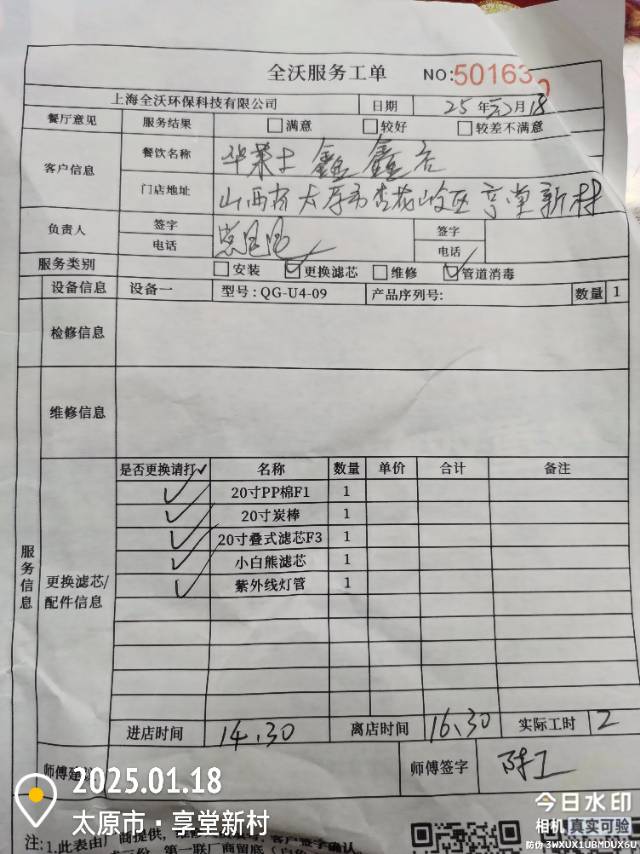 全沃服务工单 NO:501630
上海全沃环保科技有限公司 日期 25年 月18
餐厅意见 服务结果 □满意 □较好 □较差不满意
客户信息 餐饮名称 华莱士鑫鑫店
门店地址 山西省太原市杏花岭区享堂新村
负责人 签字 签字
电话 电话
服务类别 □安装 ☑更换滤芯 □维修 ☑管道消毒
设备信息 设备一 型号:QG-U4-09 产品序列号: 数量 1
检修信息
维修信息
服务信息
更换滤芯/配件信息
是否更换请打✓ 名称 数量 单价 合计 备注
✓ 20寸PP棉F1 1
✓ 20寸炭棒 1
✓ 20寸叠式滤芯F3 1
✓ 小白熊滤芯 1
✓ 紫外线灯管 1
进店时间 14.30 离店时间 16.30 实际工时 2
师傅建议 师傅签字 陈工
2025.01.18
太原市·享堂新村
注:1.此表由厂商提供,
第一联厂商留底
今日水印
相机 真实可验
防伪 3WXUX1UBMDUX6U